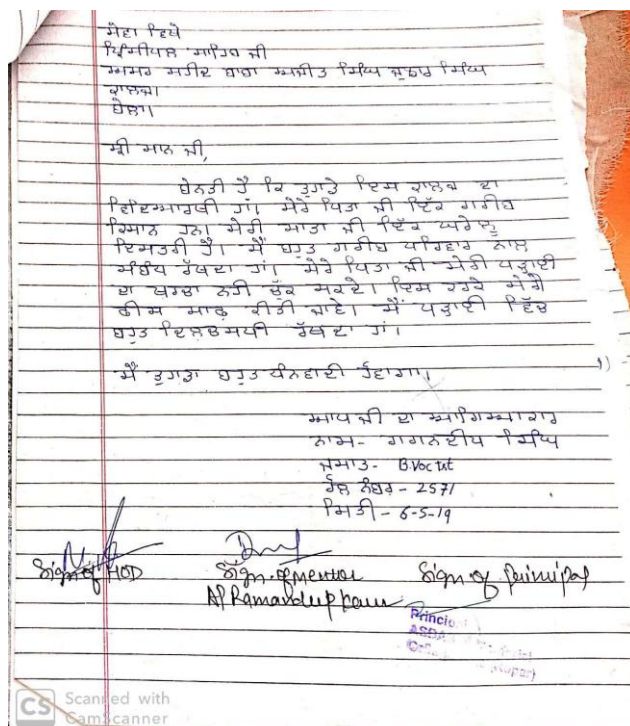 ਸੇਵਾ ਵਿਖੇ
ਪ੍ਰਿੰਸੀਪਲ ਸਾਹਿਬ ਜੀ
ਅਮਰ ਸ਼ਹੀਦ ਬਾਬਾ ਅਜੀਤ ਸਿੰਘ ਜੁਝਾਰ ਸਿੰਘ
ਕਾਲਜ।
ਬੇਲਾ।
ਸ਼੍ਰੀ ਮਾਨ ਜੀ,
ਬੇਨਤੀ ਹੈ ਕਿ ਤੁਹਾਡੇ ਇਸ ਕਾਲਜ ਦਾ
ਵਿਦਿਆਰਥੀ ਹਾਂ। ਮੇਰੇ ਪਿਤਾ ਜੀ ਇੱਕ ਗਰੀਬ
ਕਿਸਾਨ ਹਨ। ਮੇਰੀ ਮਾਤਾ ਜੀ ਇੱਕ ਘਰੇਲੂ
ਇਸਤਰੀ ਹੈ। ਮੈਂ ਬਹੁਤ ਗਰੀਬ ਪਰਿਵਾਰ ਨਾਲ
ਸੰਬੰਧ ਰੱਖਦਾ ਹਾਂ। ਮੇਰੇ ਪਿਤਾ ਜੀ ਮੇਰੀ ਪੜ੍ਹਾਈ
ਦਾ ਖਰਚਾ ਨਹੀ ਚੁੱਕ ਸਕਦੇ। ਇਸ ਕਰਕੇ ਮੇਰੀ
ਫੀਸ ਮਾਫ਼ ਕੀਤੀ ਜਾਵੇ। ਮੈਂ ਪੜ੍ਹਾਈ ਵਿੱਚ
ਬਹੁਤ ਦਿਲਚਸਪੀ ਰੱਖਦਾ ਹਾਂ।
ਮੈਂ ਤੁਹਾਡਾ ਬਹੁਤ ਧੰਨਵਾਦੀ ਹੋਵਾਗਾ।
ਆਪ ਜੀ ਦਾ ਆਗਿਆਕਾਰ
ਨਾਮ- ਗਗਨਦੀਪ ਸਿੰਘ
ਜਮਾਤ- B.Voc 1st
ਰੋਲ ਨੰਬਰ - 2571
ਮਿਤੀ - 6-5-19
Sign of HOD Sign. of Mentor Sign of Principal
AP Ramandeep Kaur
CS Scanned with
CamScanner